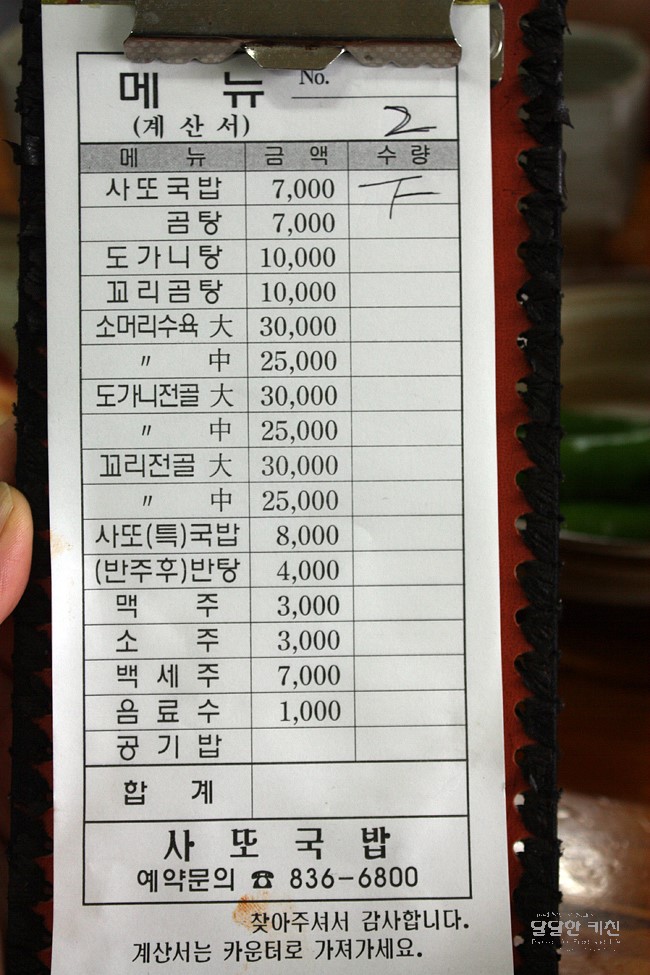 메 뉴 No.
(계 산 서) 2
메 뉴 금 액 수 량
사또국밥 7,000 丅
곰탕 7,000
도가니탕 10,000
꼬리곰탕 10,000
소머리수육 大 30,000
〃 中 25,000
도가니전골 大 30,000
〃 中 25,000
꼬리전골 大 30,000
〃 中 25,000
사또(특)국밥 8,000
(반주후)반탕 4,000
맥 주 3,000
소 주 3,000
백 세 주 7,000
음 료 수 1,000
공 기 밥
합 계
사 또 국 밥
예약문의 ☎ 836-6800
찾아주셔서 감사합니다.
계산서는 카운터로 가져가세요.
달달한 키친